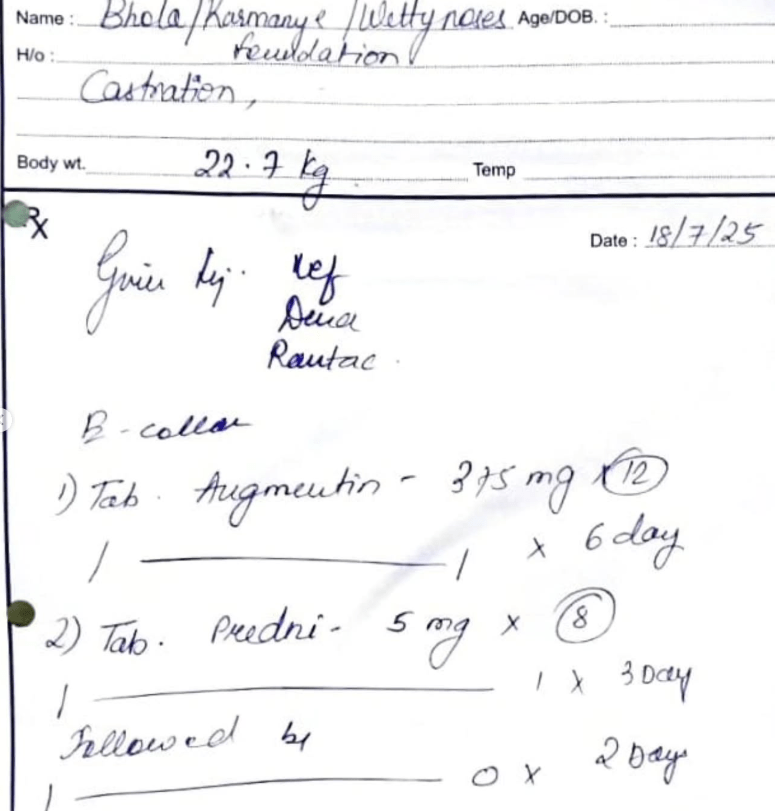 Name : Bhola/Karmanye /Wettynoses Age/DOB. :
foundation
H/o :
Castration,
Body wt. 22.7 kg Temp
Rx
Date : 18/7/25
Given Inj. Xef
Dexa
Rantac.
E-collar
1) Tab. Augmentin - 375 mg x 12
1 ———— 1 x 6 day
2) Tab. Predni - 5 mg x 8
1 ———— 1 x 3 Day
Followed by
1 ———— 0 x 2 Days